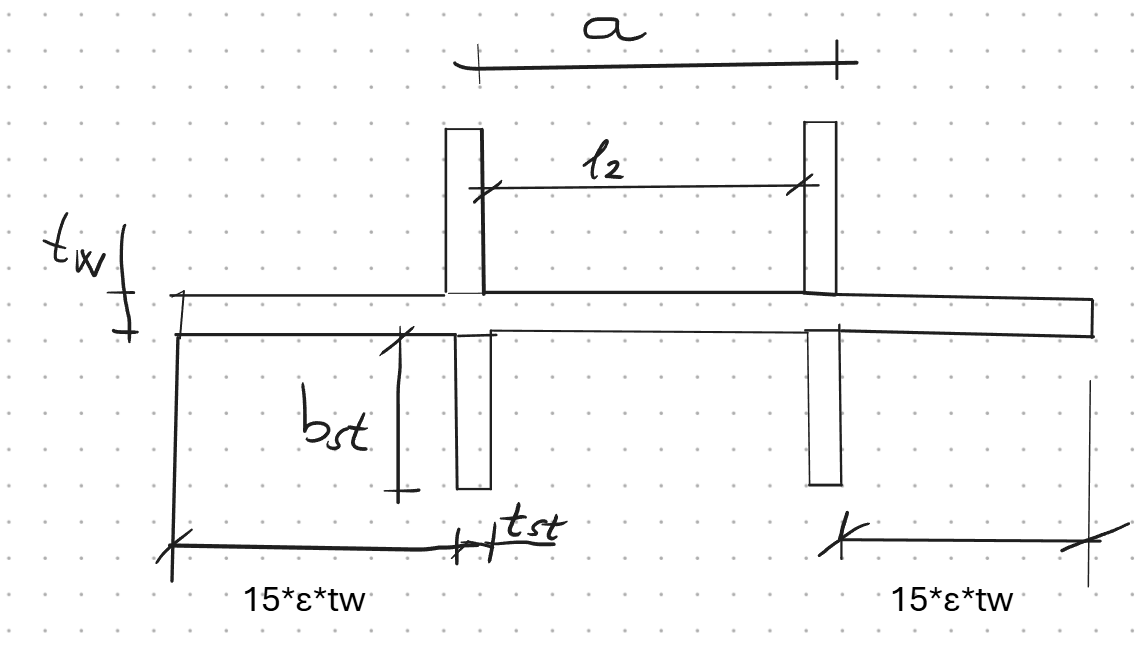 a
l2
tw
bst
tst
15*ε*tw
15*ε*tw